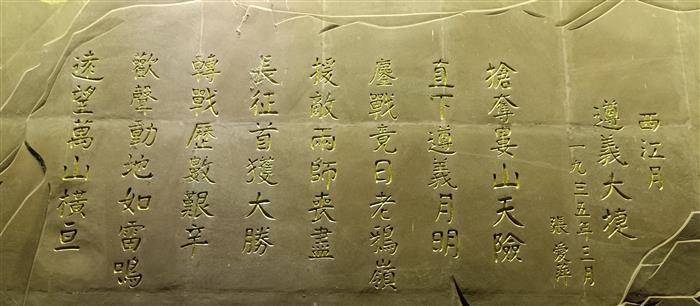 西江月
遵義大捷
一九三五年三月
張愛萍
搶奪婁山天險
直下遵義月明
鏖戰竟日老鴉嶺
援敵兩師喪盡
長征首獲大勝
轉戰歷數艱辛
歡聲動地如雷鳴
遠望萬山橫亘